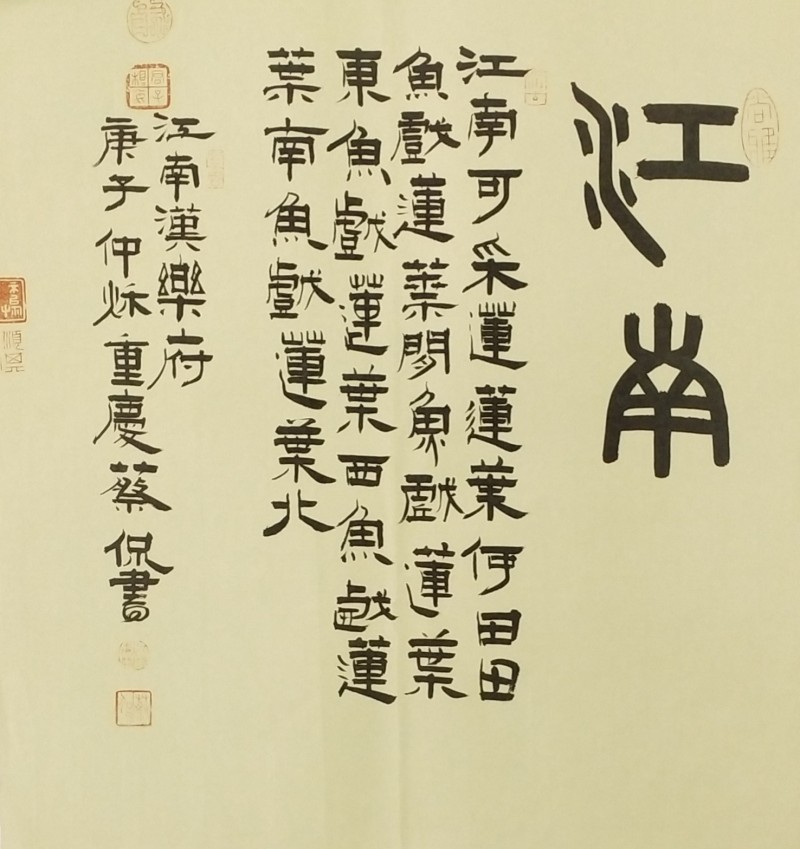 江南
江南可采蓮蓮葉何田田
魚戲蓮葉間魚戲蓮葉
東魚戲蓮葉西魚戲蓮
葉南魚戲蓮葉北
江南漢樂府
庚子仲秌重慶蔡侃書